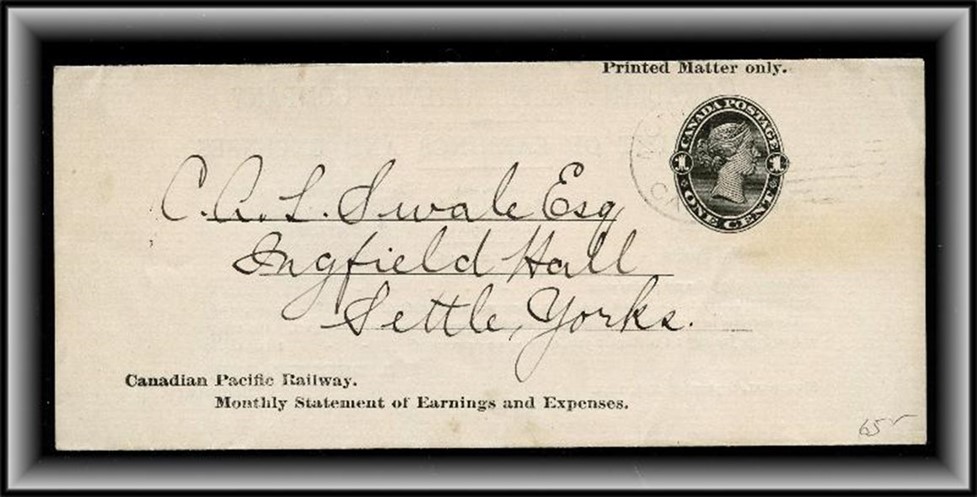 Printed Matter only.
CANADA POSTAGE
1 1
ONE CENT
C. A. L. Swale Esq
Ingfield Hall
Settle, Yorks.
Canadian Pacific Railway.
Monthly Statement of Earnings and Expenses.
65